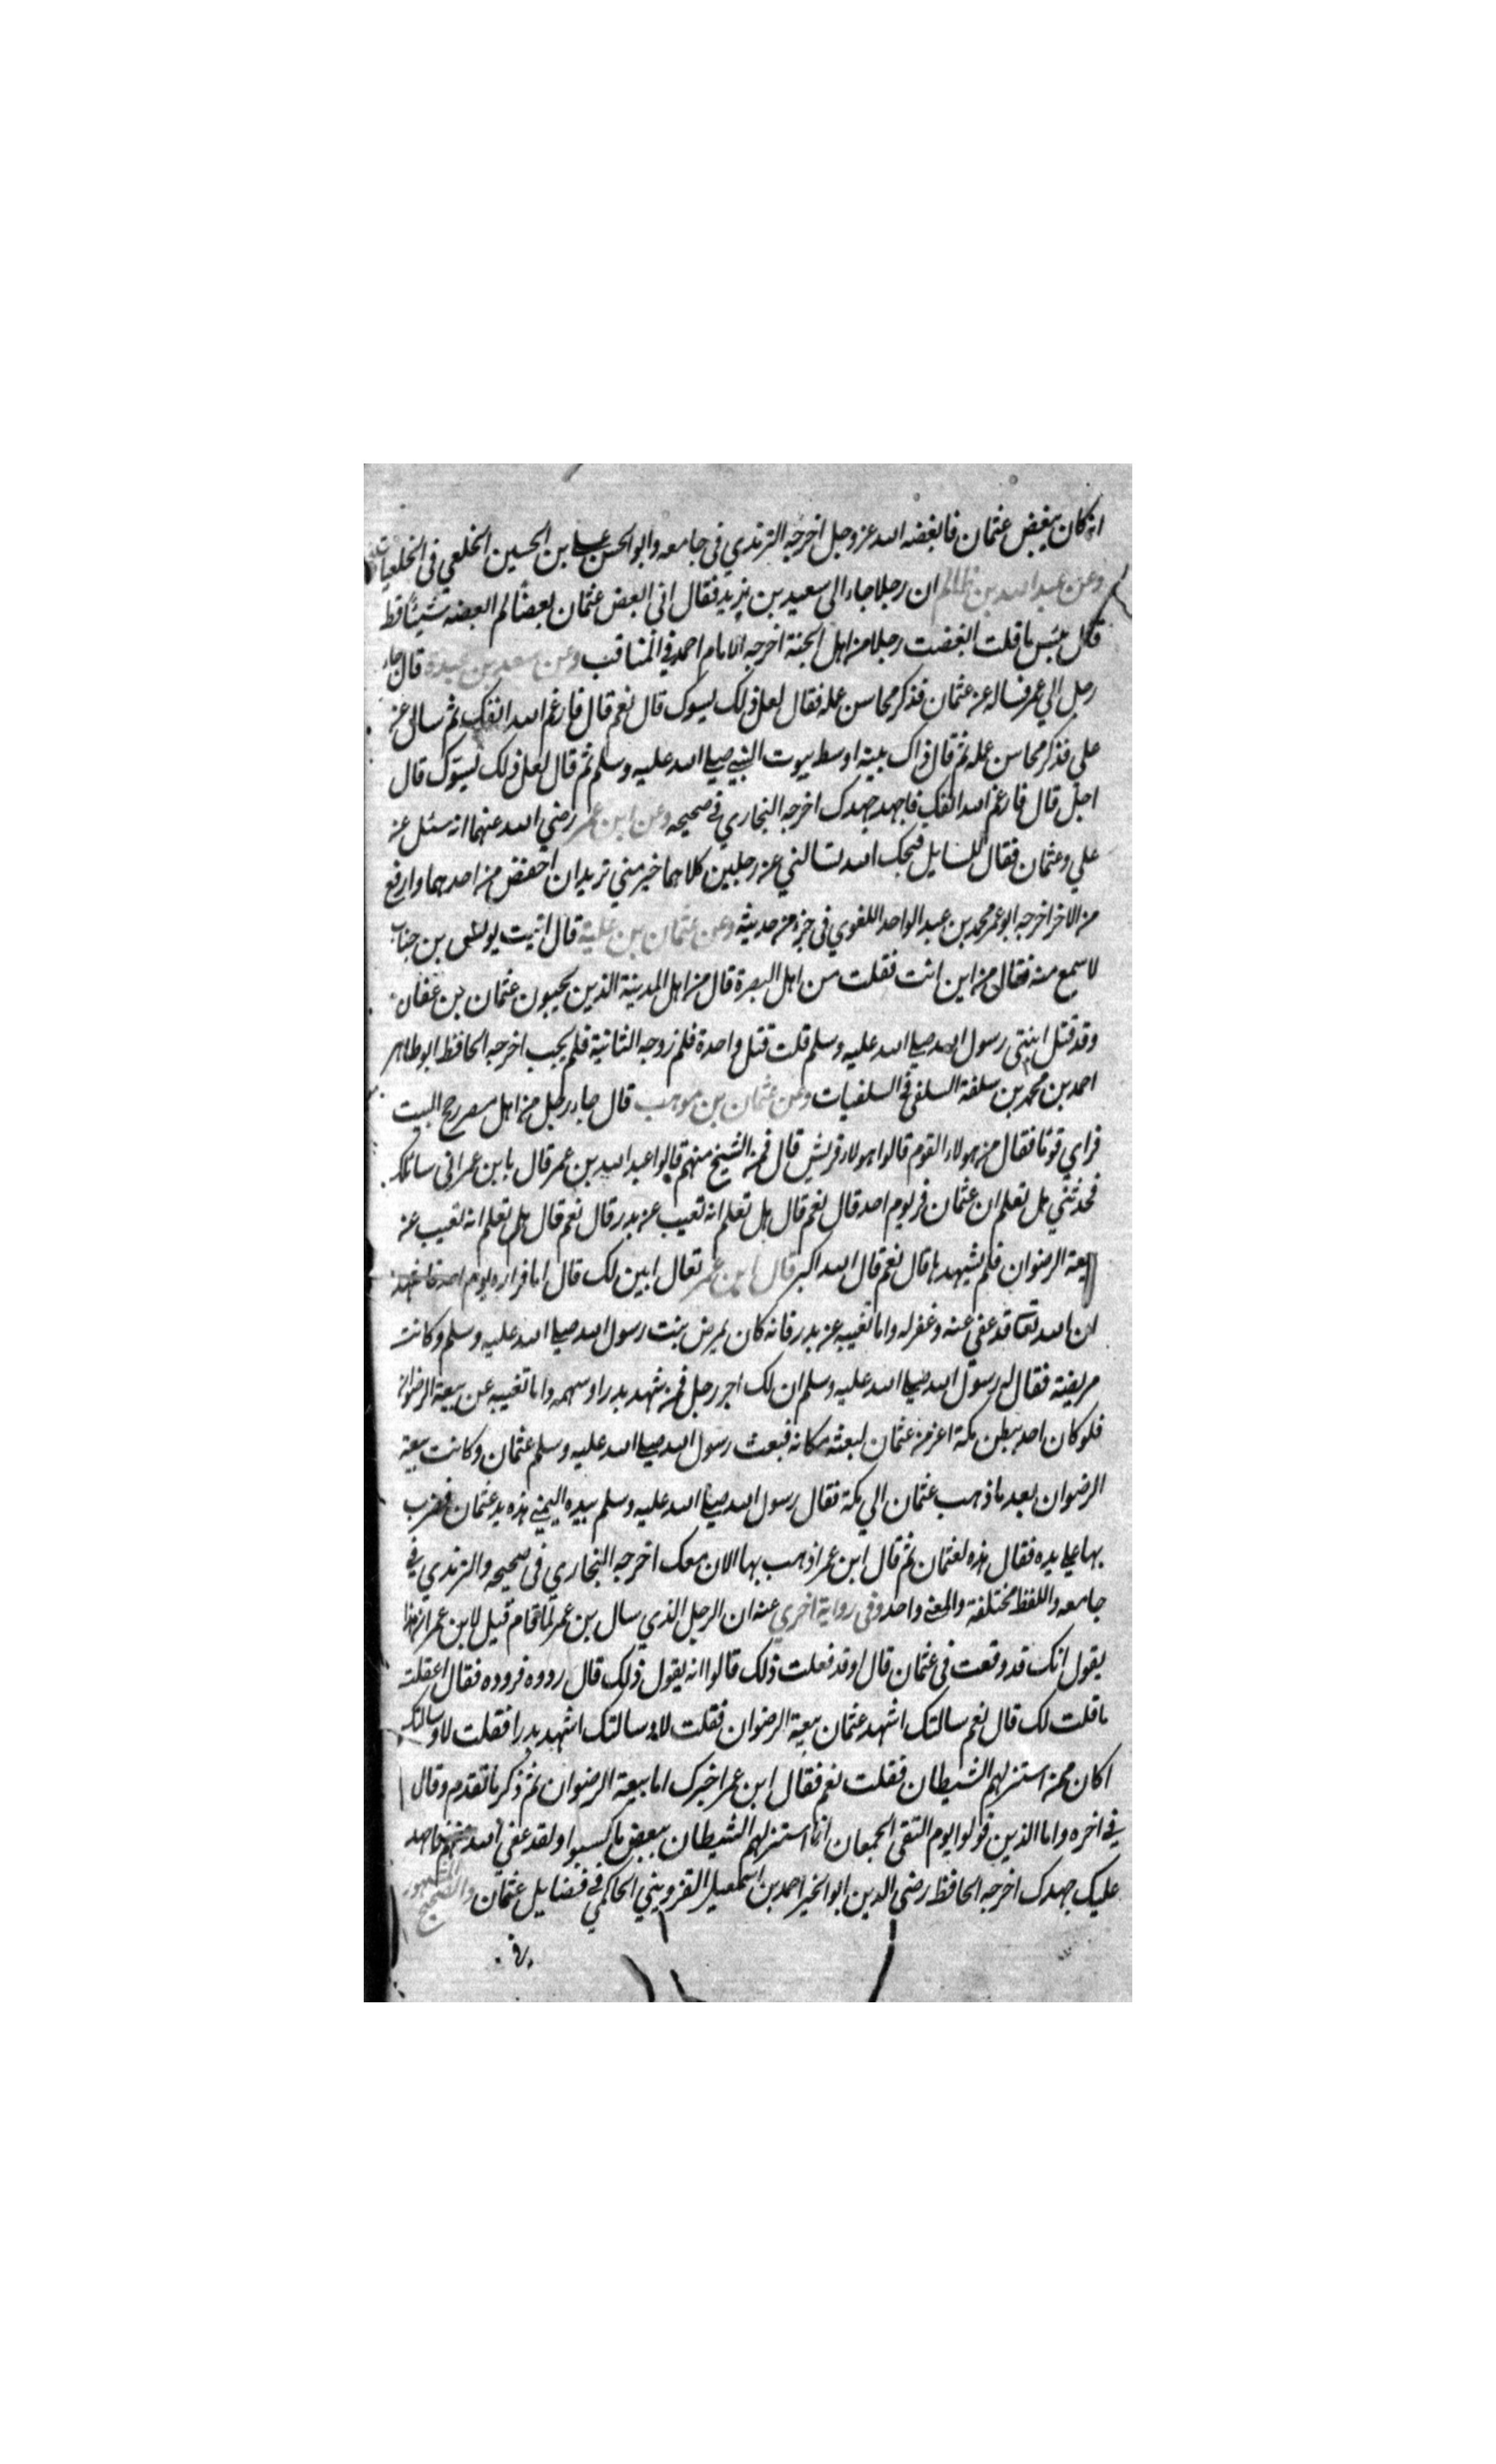 انه كان يبغض عثمان فابغضه الله عز وجل اخرجه الترمذي في جامعه وابو الحسن علي بن الحسين الخلعي في الخلعيات
وعن عبد الله بن ظالم ان رجلا جاء الى سعيد بن يزيد فقال اني ابغض عثمان بغضا لم ابغضه شيئا قط
قال بئس ما قلت ابغضت رجلا من اهل الجنة اخرجه الامام احمد في المناقب وعن سعد بن عبيدة قال جاء
رجل الي عمر فساله عن عثمان فذكر محاسن عمله فقال لعل ذلك يسوك قال نعم قال فارغم الله انفك ثم ساله عن
علي فذكر محاسن عمله ثم قال ذاك بيته اوسط بيوت النبي صلى الله عليه وسلم ثم قال لعل ذلك يسوك قال
اجل قال فارغم الله انفك فاجهد جهدك اخرجه البخاري في صحيحه وعن ابن عمر رضي الله عنهما انه سئل عن
علي وعثمان فقال للسايل قبحك الله تسالني عن رجلين كلاهما خير مني تريد ان اخفض من احدهما وارفع
من الاخر اخرجه ابو عمر محمد بن عبد الواحد اللغوي في جزء من حديثه وعن عثمان بن علية قال اتيت يونس بن خباب
لاسمع منه فقال من اين انت فقلت من اهل البصرة قال من اهل المدينة الذين يحبون عثمان بن عفان
وقد قتل ابنتي رسول الله صلى الله عليه وسلم قلت قتل واحدة فلم زوجه الثانية فلم يجب اخرجه الحافظ ابو طاهر
احمد بن محمد بن سلفة السلفي في السلفيات وعن عثمان بن موهب قال جاء رجل من اهل مصر حج البيت
فراي قوما فقال من هولاء القوم قالوا هولاء قريش قال فمن الشيخ منهم قالوا عبد الله بن عمر قال يا بن عمر اني سائلك
فحدثني هل تعلم ان عثمان فر يوم احد قال نعم قال هل تعلم انه تغيب عن بدر قال نعم قال هل تعلم انه تغيب عن
بيعة الرضوان فلم يشهدها قال نعم قال الله اكبر قال ابن عمر تعال ابين لك قال اما فراره يوم احد فاشهد
ان الله تعا قد عفي عنه وغفر له واما تغيبه عن بدر فانه كان يمرض بنت رسول الله صلى الله عليه وسلم وكانت
مريضة فقال له رسول الله صلى الله عليه وسلم ان لك اجر رجل فمن شهد بدرا وسهمه واما تغيبه عن بيعة الرضوان
فلو كان احد ببطن مكة اعز من عثمان لبعثه مكانه فبعث رسول الله صلى الله عليه وسلم عثمان وكانت بيعة
الرضوان بعد ما ذهب عثمان الي مكة فقال رسول الله صلى الله عليه وسلم بيده اليمني هذه يد عثمان فضرب
بها علي يده فقال هذه لعثمان ثم قال ابن عمر اذهب بها الان معك اخرجه البخاري في صحيحه والترمذي في
جامعه واللفظ مختلفة والمعني واحد وفي رواية اخري عنه ان الرجل الذي سال بن عمر لما قام قيل لابن عمر ان هذا
يقول انك قد وقعت في عثمان قال او قد فعلت ذلك قالوا انه يقول ذلك قال ردوه فردوه فقال اعقلت
ما قلت لك قال نعم سالتك اشهد عثمان بيعة الرضوان فقلت لا وسالتك اشهد بدرا فقلت لا وسالتك
اكان ممن استنزلهم الشيطان فقلت نعم فقال ابن عمر اخبرك اما بيعة الرضوان ثم ذكر ما تقدم وقال
في اخره واما الذين تولوا يوم التقى الجمعان انما استنزلهم الشيطان ببعض ما كسبوا ولقد عفي الله عنهم فاجهد
عليك جهدك اخرجه الحافظ رضي الدين ابو الخير احمد بن اسمعيل القزويني الحاكمي في فضايل عثمان والصحيح المشهور